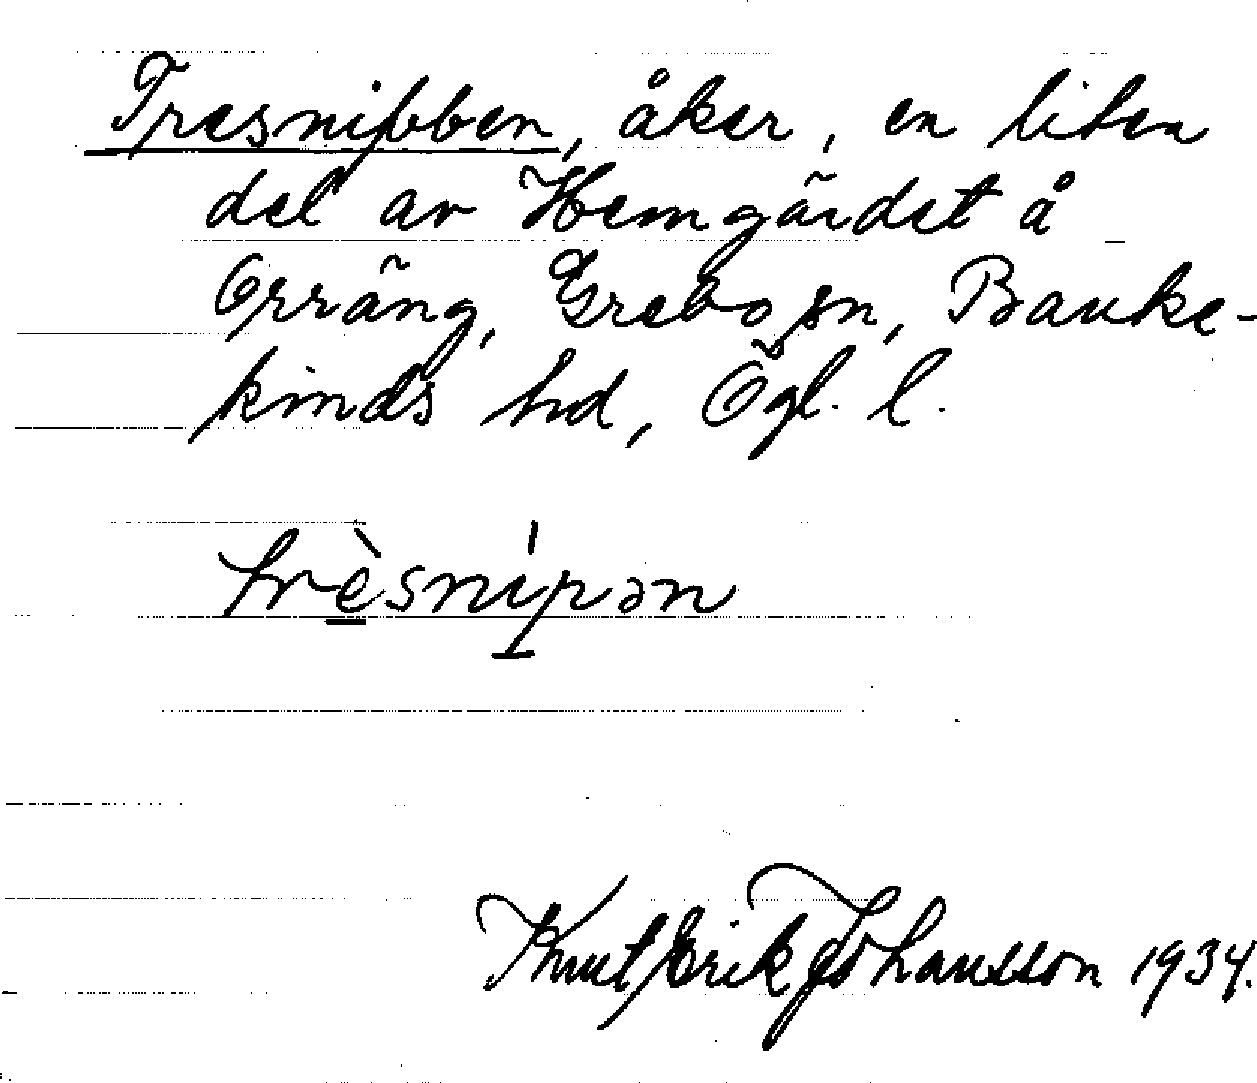 Tresnibben, åker, en liten
del av Hemgärdet å
Orräng, Grebo sn, Banke-
kinds hd, Ögl. l.
trèsnípən
Knut Erik Johansson 1934.